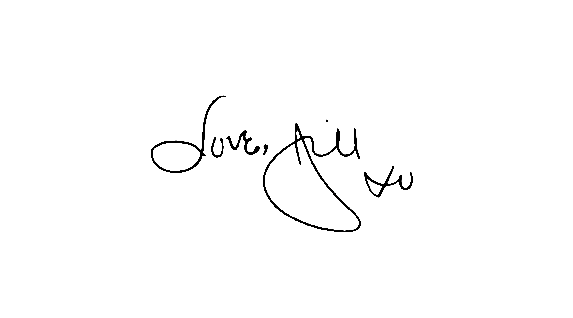 Love, Jill
xo